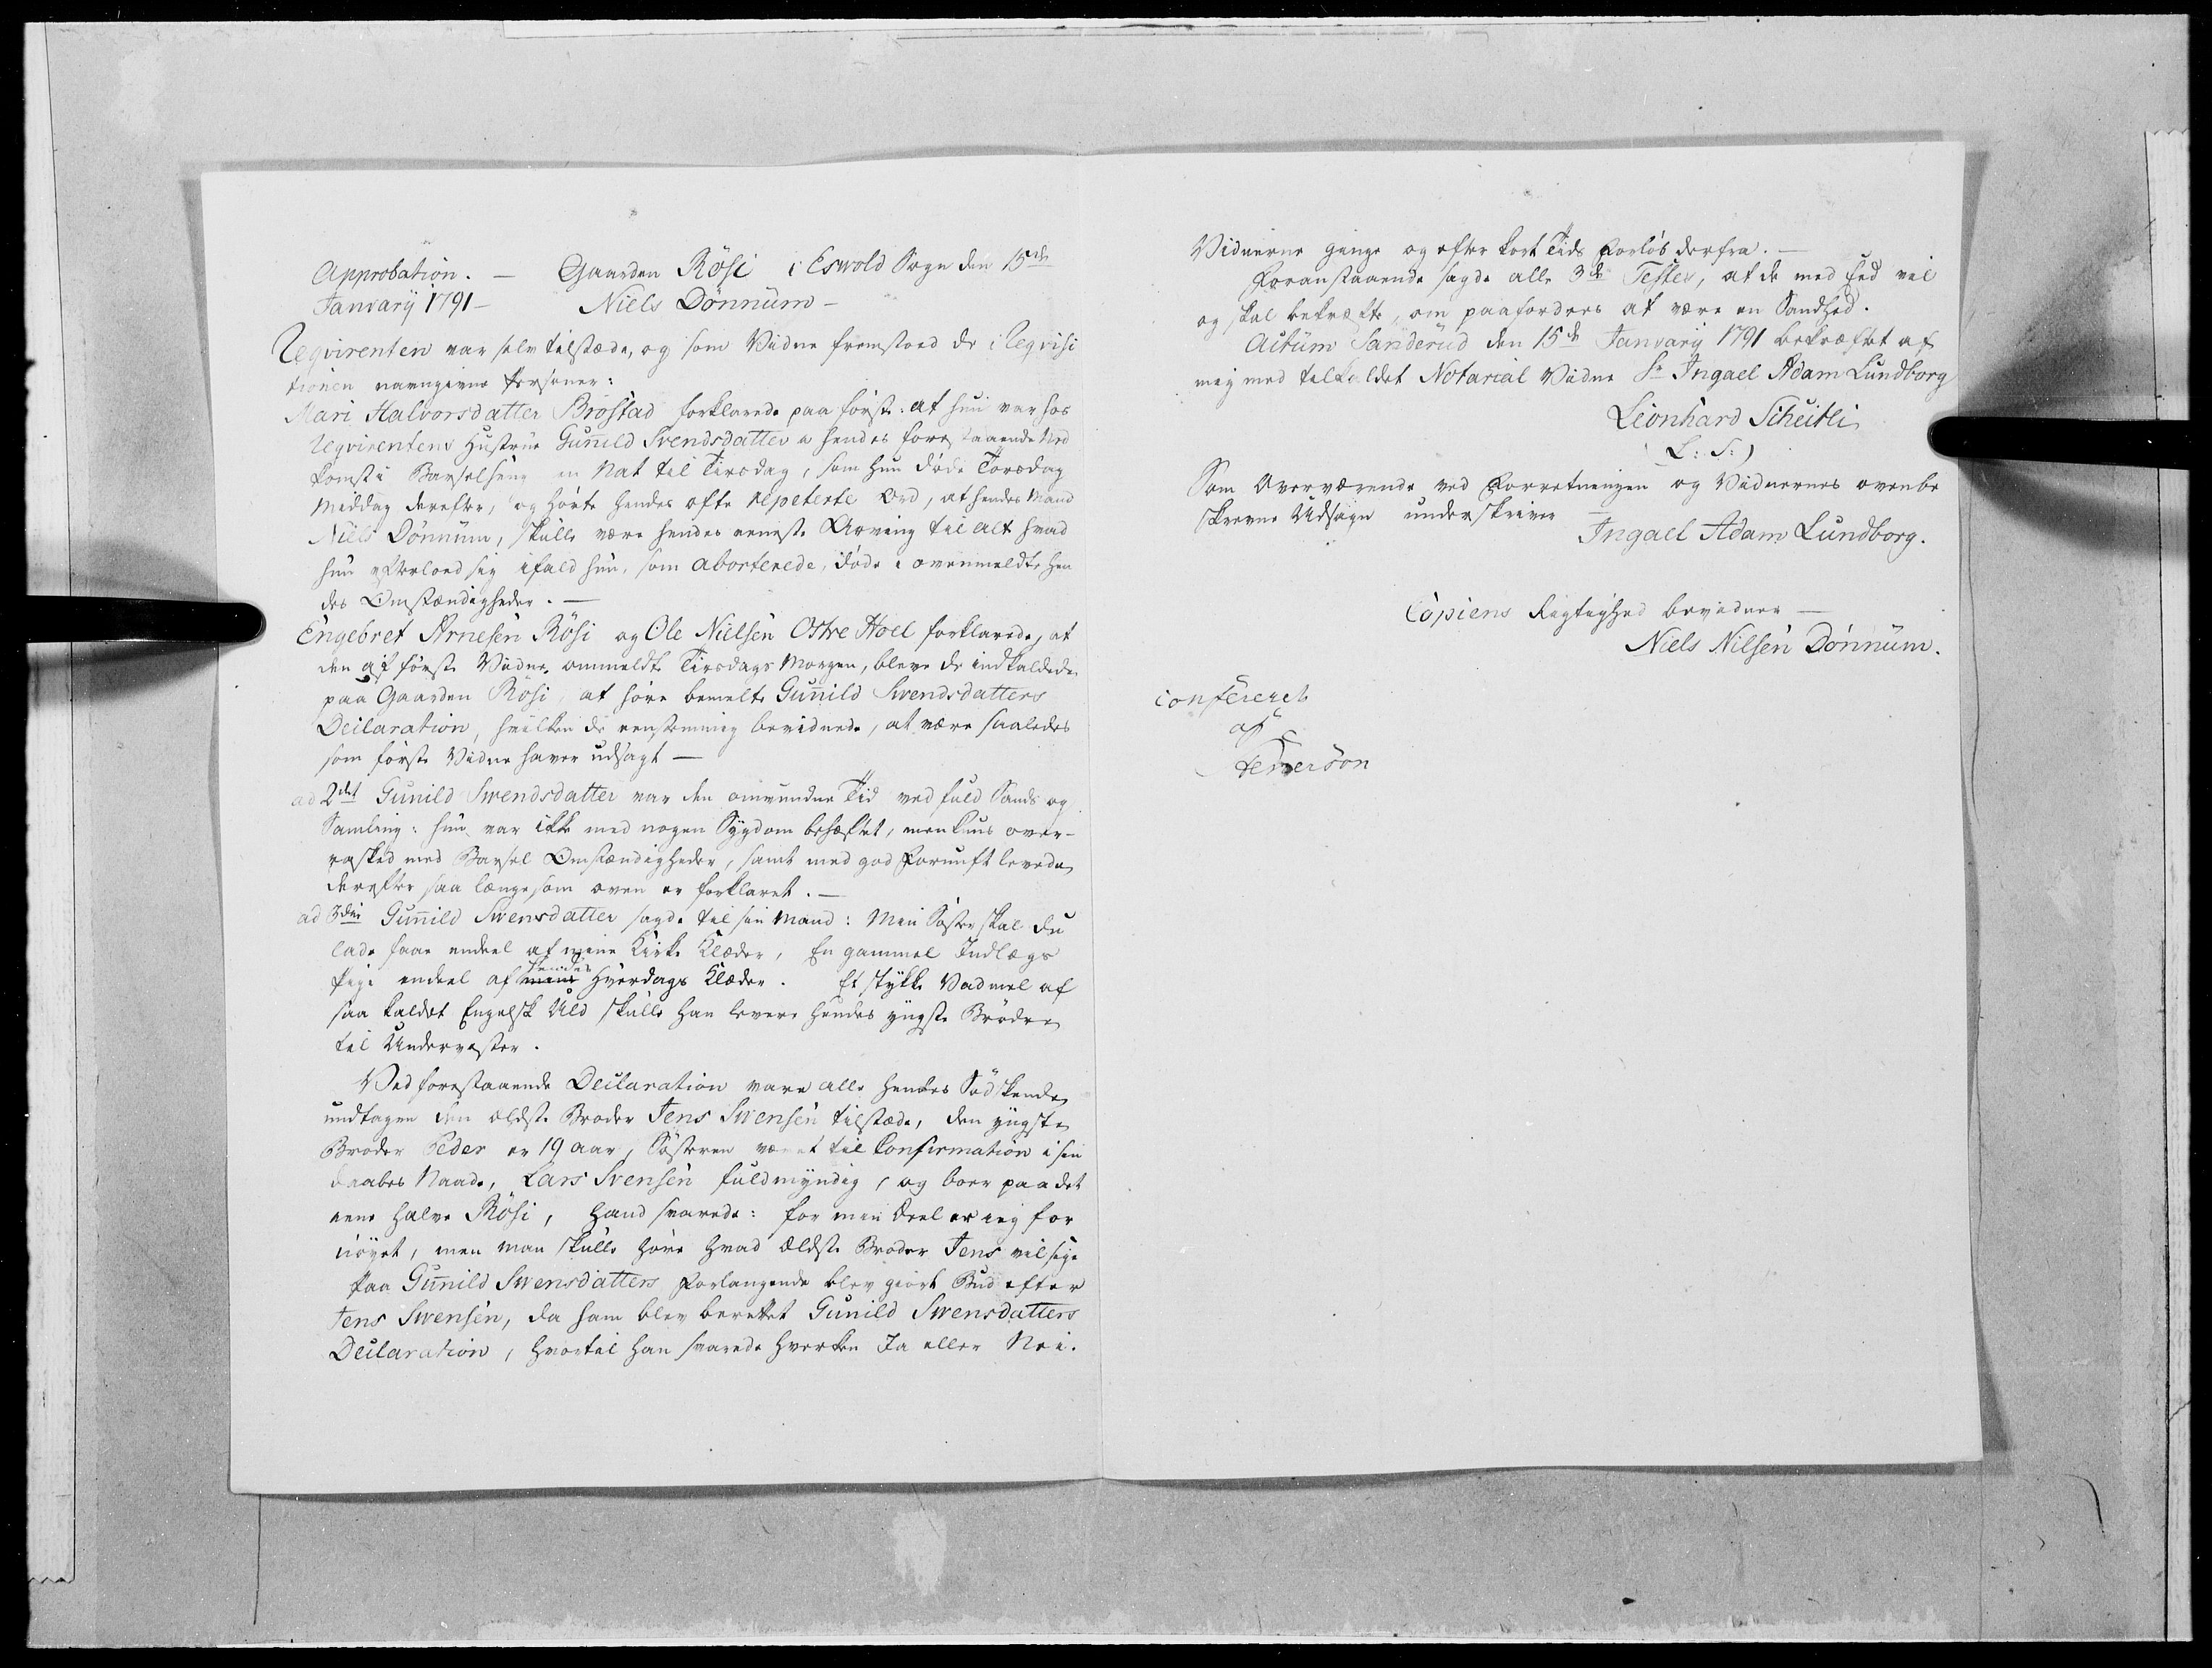 Approbation. — Gaarden Rösi i Eswold Sogn den 15de
Januarij 1791 — Niels Dönnum —
Reqvirenten var selv tilstæde, og som Vidne fremstoed de i Reqvisi
tionen navngivne Personer:
Mari Halvorsdatter Brostad forklarede paa første: at hun var hos
Reqvirentens Hustrue Gunild Svendsdatter i hendes forestaaende Ned
komst i Barselseng en Nat til Tirsdag, som hun døde Torsdag
Middag derefter, og hørte hendes ofte repeterte Ord, at hendes Mand
Niels Dönnum, skulle være hendes eeneste Arving til alt hvad
hun efterloed sig ifald hun, som aborterede, døde i ovenmeldte hen
des Omstændigheder. —
Engebret Arnesen Rösi og Ole Nielsen Ostre Hoel forklarede, at
den af første Vidne ommeldte Tirsdags Morgen, bleve de indkaldede
paa Gaarden Rösi, at høre bemelte Gunild Svendsdatters
Declaration, hvilken de eenstemmig bevidnede, at være saaledes
som første Vidne haver udsagt —
ad 2det Gunild Svendsdatter var den omvundne Tid ved fuld Sands og
Samling: hun var ikke med nogen Sygdom behæftet, men kuns over-
rasked med Barsel Omstændigheder, samt med god Fornuft levede
derefter saa længe som oven er forklaret. —
ad 3die Gunild Svensdatter sagde til sin Mand: Min Søster skal du
lade faae endeel af mine Kirke Klæder, En gammel Indlægs
Pige endeel af mine hendes Hverdags Klæder. Et stykke Vadmel af
saa kaldet Engelsk Uld skulle han levere hendes yngste Brødre
til Undervester.
Ved forestaaende Declaration vare alle hendes Sødskende
undtagen den ældste Broder Jens Svensen tilstæde, den yngste
Broder Peder er 19 aar, Søsteren været til Confirmation i sin
Daabes Naade, Lars Svensen fuldmyndig, og boer paa det
eene halve Rösi, hand svarede: for min Deel er ieg for
nöyet, men man skulle høre hvad Ældste Broder Jens vil sige
Paa Gunild Swensdatters Forlangende blev giort Bud efter
Jens Swensen, da ham blev berettet Gunild Swensdatters
Declaration, hvortil han svarede hverken Ja eller Nei.
Vidnerne ginge og efter kort Tids Forløb derfra. —
Foranstaaende sagde alle 3de Testes, at de med Eed vil
og skal bekræfte, om paafordres at være en Sandhed.
Actum Sanderud den 15de Januarij 1791 bekræftet af
mig med tilkaldet Notarial Vidne Sr Ingael Adam Lundborg
Leonhard Scheitli
(L: S:)
Som Overværende ved Forretningen og Vidnernes ovenbe
skrevne Udsagn underskriver —
Ingael Adam Lundborg.
Copiens Rigtighed bevidner —
Niels Nilsen Dönnum.
confereret
af